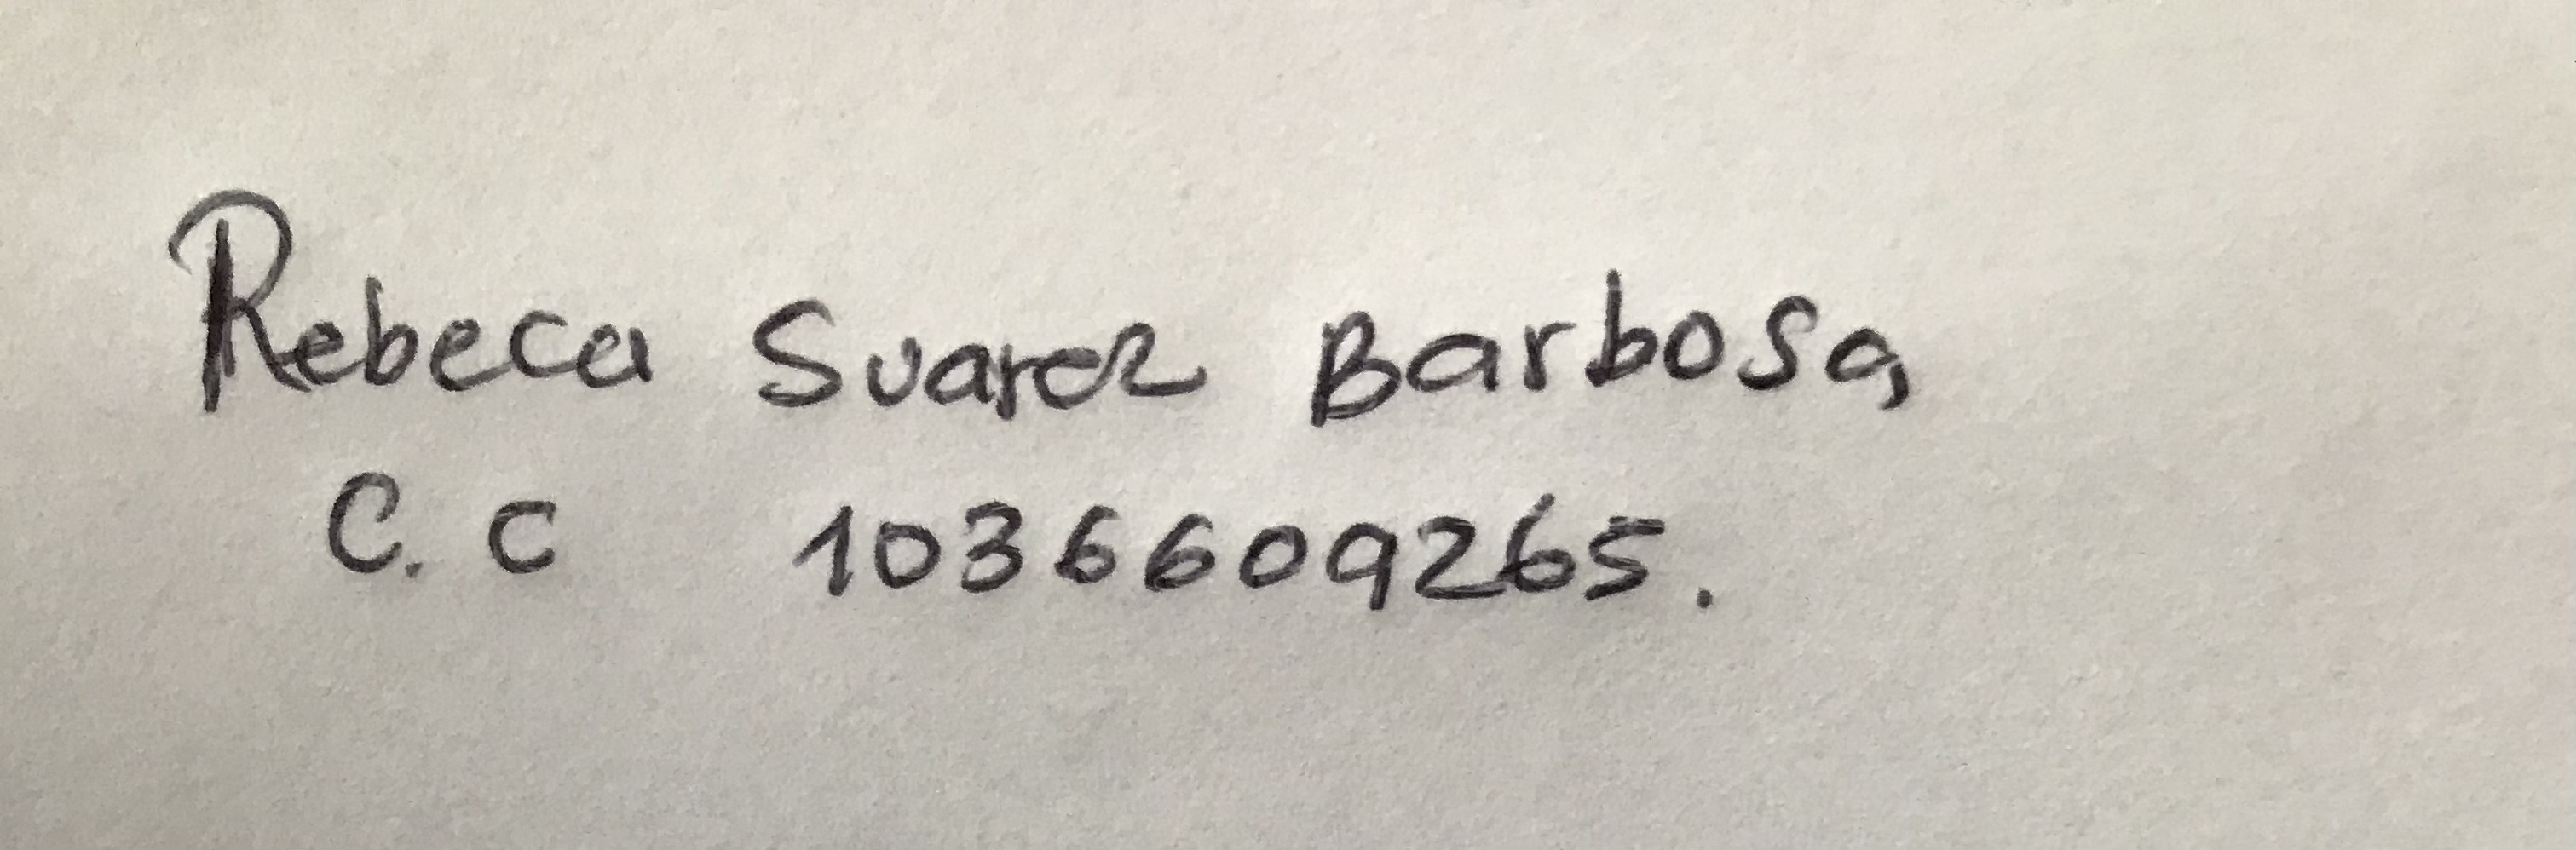 Rebeca Suarez Barbosa
C. C 1036609265.